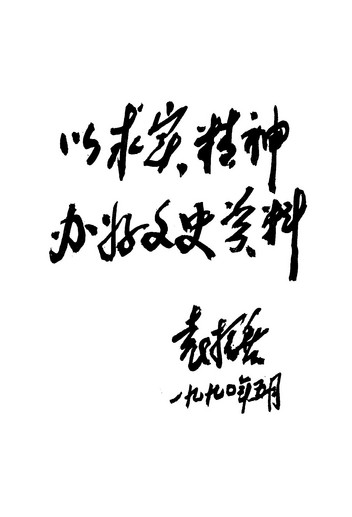 以求实精神
办好文史资料
袁
一九九〇年五月